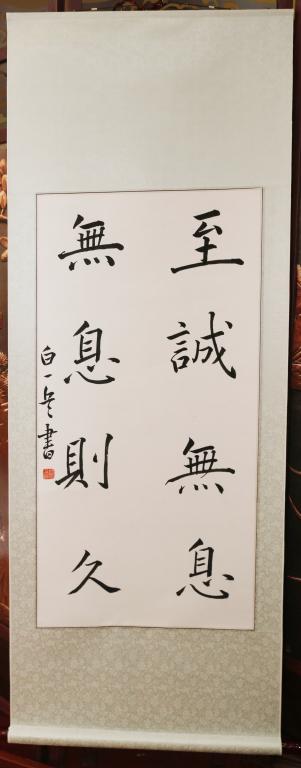 至誠無息
無息則久
白一兵書